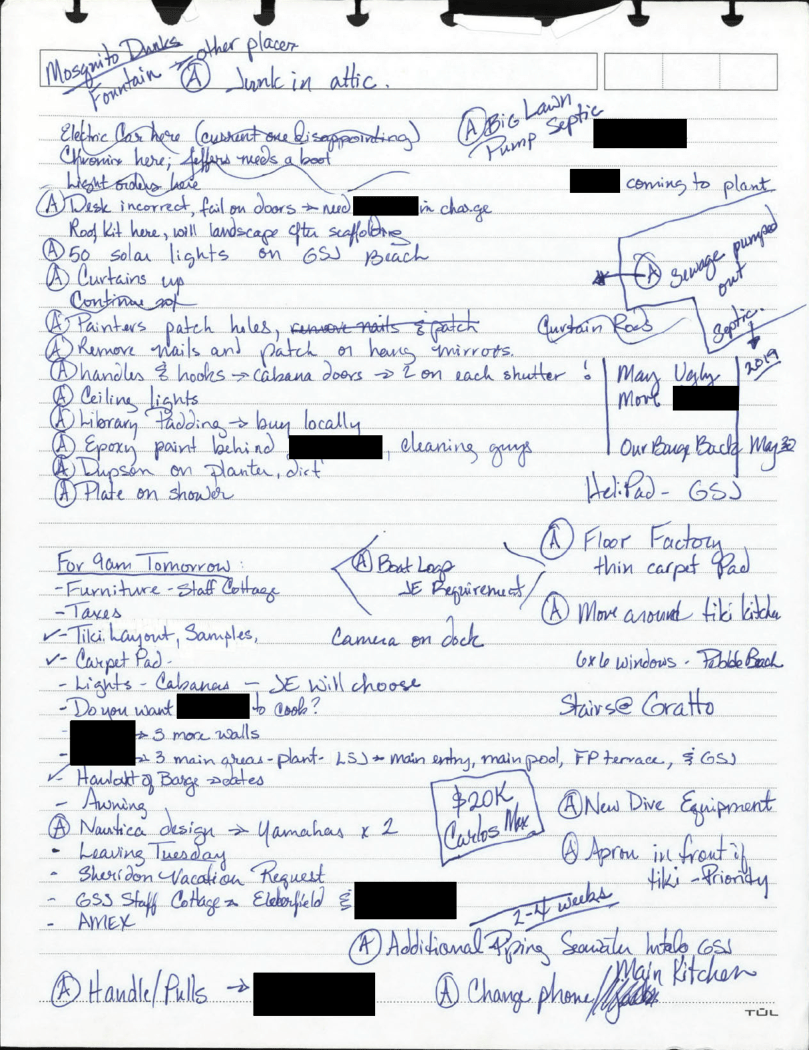 Mosquito Dunks → other places
Fountain
Ⓐ Junk in attic.
Electric Car here (current one disappointing)
Ⓐ Big Lawn
Pump Septic
here; needs a boot
Light orders here
coming to plant
Ⓐ Desk incorrect, fail on doors → need in charge
Roof Kit here, will landscape after scaffolding
Ⓐ 50 solar lights on GSJ Beach
Ⓐ Sewage pumped out
Ⓐ Curtains up
Continue
Septic.
Ⓐ Painters patch holes, remove nails & patch
Curtain Rods
Ⓐ Remove nails and patch or hang mirrors.
2019
Ⓐ handles & hooks → cabana doors → 2 on each shutter!
May Ugly
Move
Ⓐ Ceiling lights
Ⓐ Library Padding → buy locally
Ⓐ Epoxy paint behind , cleaning guys
Our Barge Back May
Ⓐ on planter, dirt
Ⓐ Plate on shower
HeliPad - GSJ
Ⓐ Floor Factory
thin carpet Pad
For 9am Tomorrow:
Ⓐ Boat Loop
JE Requirement
- Furniture - Staff Cottage
- Taxes
Ⓐ Move around tiki kitchen
✓- Tiki Layout, Samples,
Camera on dock
✓- Carpet Pad -
6x6 windows - Pebble Beach
- Lights - Cabanas - JE will choose
- Do you want to cook?
Stairs @ Gratto
- → 3 more walls
- → 3 main areas - plant - LSJ → main entry, main pool, FP terrace, & GSJ
✓- of Barge → dates
- Awning
$20K
Carlos Max
Ⓐ New Dive Equipment
Ⓐ Nautica design → Yamahas x 2
- Leaving Tuesday
Ⓐ Apron in front if
tiki - Priority
- Sheridon Vacation Request
- GSJ Staff Cottage → &
- AMEX
2-4 weeks
Ⓐ Additional Piping Seawater Intake GSJ
Main Kitchen
Ⓐ Handle/Pulls →
Ⓐ Change phone/
TUL